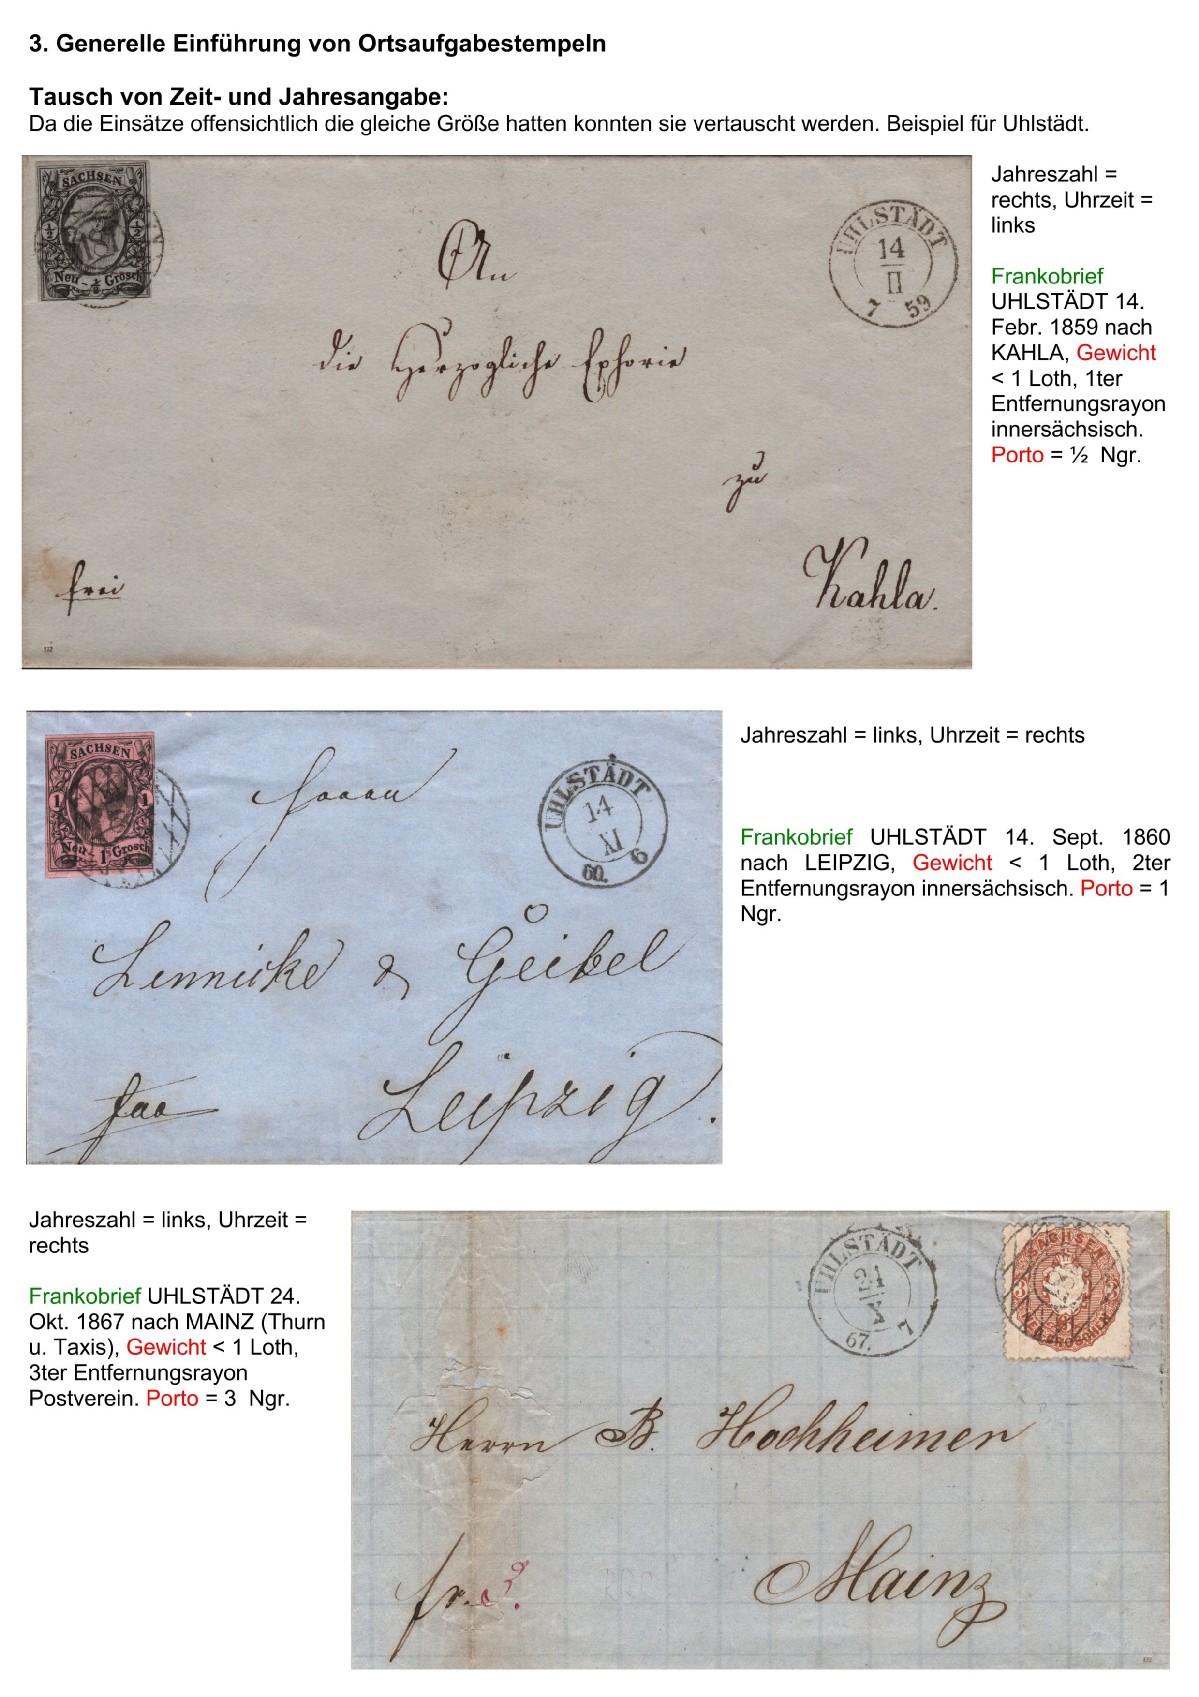 3. Generelle Einführung von Ortsaufgabestempeln
Tausch von Zeit- und Jahresangabe:
Da die Einsätze offensichtlich die gleiche Größe hatten konnten sie vertauscht werden. Beispiel für Uhlstädt.
SACHSEN
½ ½
Neu - ½ Grosch
An
die Herzogliche Ephorie
zu
Kahla.
frei
UHLSTÄDT
14
II
7 59
122
Jahreszahl =
rechts, Uhrzeit =
links
Frankobrief
UHLSTÄDT 14.
Febr. 1859 nach
KAHLA, Gewicht
< 1 Loth, 1ter
Entfernungsrayon
innersächsisch.
Porto = ½ Ngr.
SACHSEN
1
Neu - 1 Grosch
UHLSTÄDT
14
XI
60. 6
Lennicke & Geibel
Leipzig.
Jahreszahl = links, Uhrzeit = rechts
Frankobrief UHLSTÄDT 14. Sept. 1860
nach LEIPZIG, Gewicht < 1 Loth, 2ter
Entfernungsrayon innersächsisch. Porto = 1
Ngr.
Jahreszahl = links, Uhrzeit =
rechts
Frankobrief UHLSTÄDT 24.
Okt. 1867 nach MAINZ (Thurn
u. Taxis), Gewicht < 1 Loth,
3ter Entfernungsrayon
Postverein. Porto = 3 Ngr.
UHLSTÄDT
24
X
67. 7
SACHSEN
3 3
Herrn B. Hochheimer
Mainz
fr.